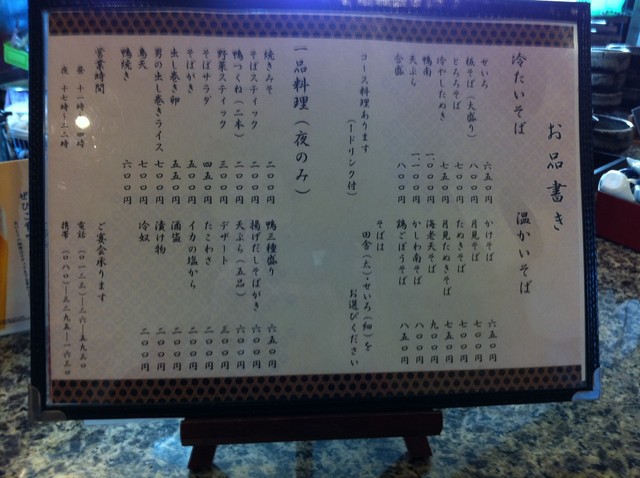 お品書き
冷たいそば
せいろ 六五〇円
板そば（大盛り） 八〇〇円
とろろそば 七〇〇円
冷やしたぬき 七五〇円
鴨南 一、〇〇〇円
天ぷら 一、一〇〇円
合盛 八〇〇円
温かいそば
かけそば 六五〇円
月見そば 七〇〇円
たぬきそば 七〇〇円
月見たぬきそば 七五〇円
海老天そば 九〇〇円
かしわ南そば 八〇〇円
鶏ごぼうそば 八五〇円
コース料理あります
（一ドリンク付）
そばは
田舎（太）・せいろ（細）を
お選びください
一品料理（夜のみ）
焼きみそ 二〇〇円
そばスティック 二〇〇円
鴨つくね（二本） 二〇〇円
野菜スティック 三〇〇円
そばサラダ 四五〇円
そばがき 五〇〇円
出し巻き卵 五五〇円
男の出し巻きライス 七〇〇円
鳥天 七〇〇円
鴨焼き 六〇〇円
鴨三種盛り 六五〇円
揚げだしそばがき 六〇〇円
天ぷら（五品） 六〇〇円
デザート 三〇〇円
たこわさ 二〇〇円
イカの塩から 二〇〇円
酒盗 二〇〇円
漬け物 二〇〇円
冷奴 二〇〇円
営業時間
昼 十一時〜十四時
夜 十七時〜二二時
ご宴会承ります
電話
携帯
ぜひご